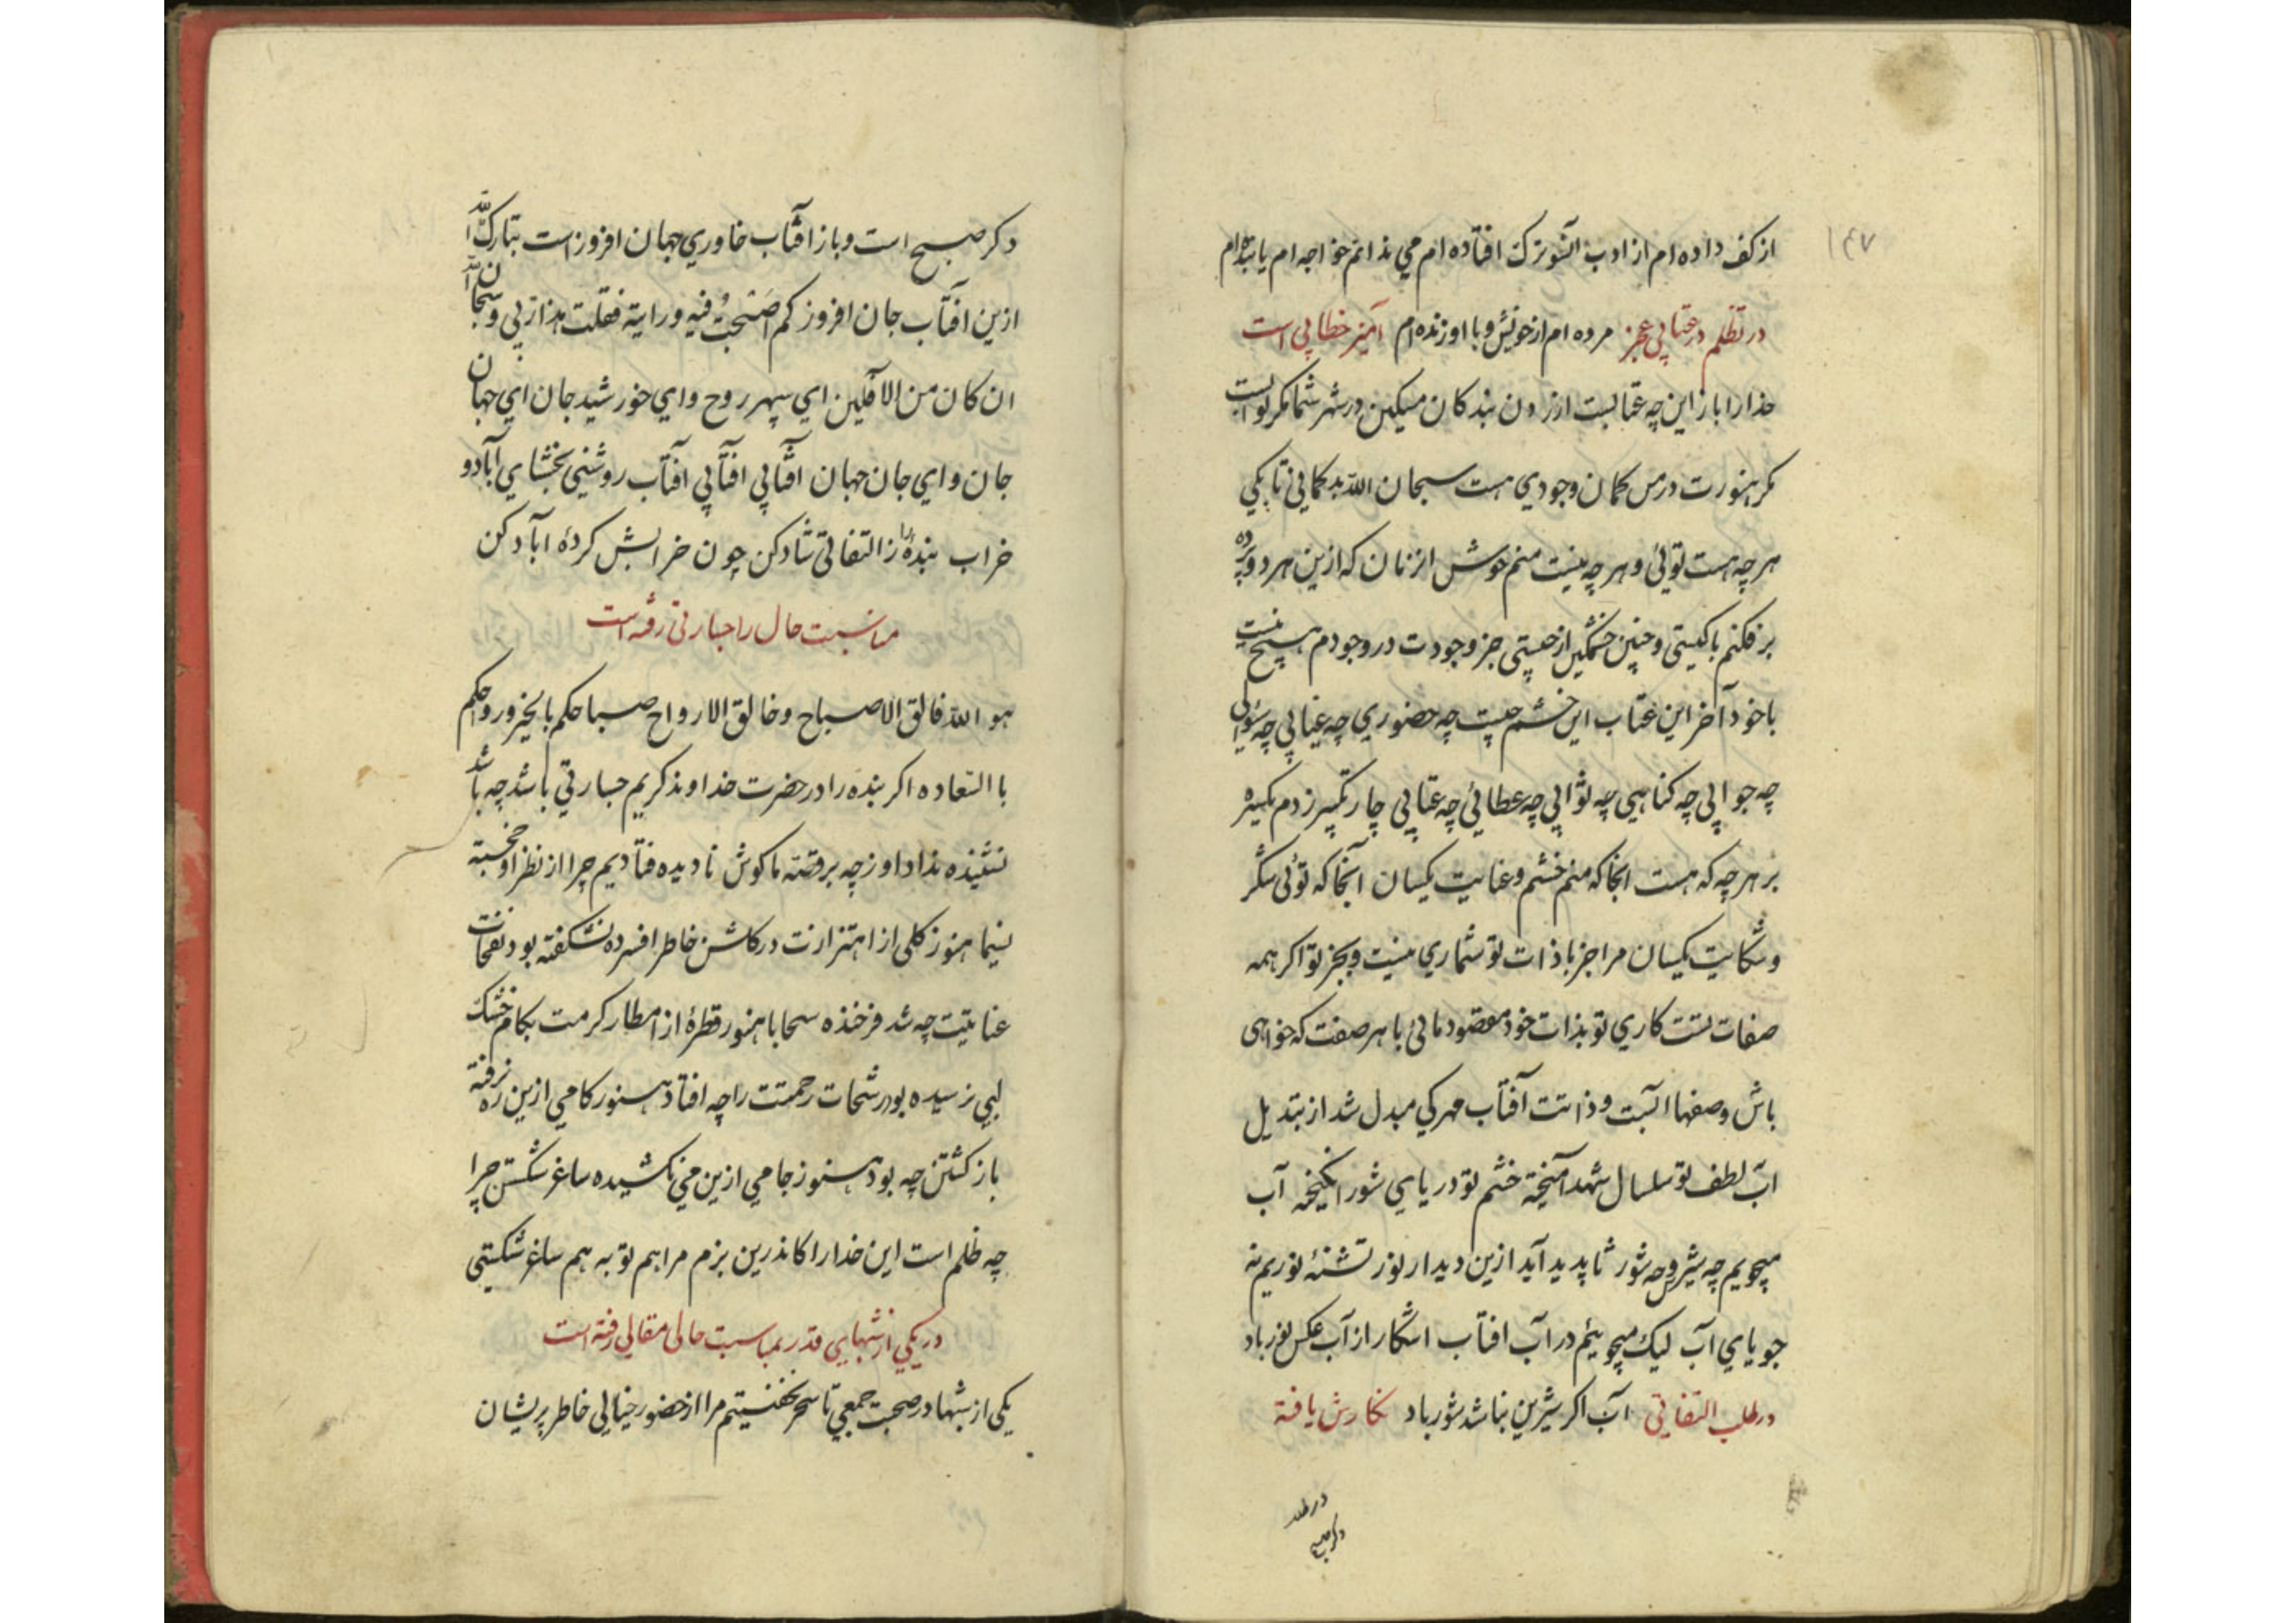 ۱۴۷
از کف داده ام از ادب آنسوترک افتاده ام می ندانم خواجه ام یا بنده ام
در تظلم در عتابی عجز مرده ام از خویش و با او زنده ام آمیز خطابی است
خدا را باز این چه عتابست ازر دن بندکان مسکین در شهر شما مکر ثوابست
مکر هنورت در من کمان وجودی هست سبحان الله بد کمانی تا یکی
هر چه هست توئی و هر چه نیست منم خوش انزمان که ازین هر دو پرده
برفکنم با کیستی و چنین خشمکین از چیستی جز وجودت در وجودم هیچ نیست
با خود آخر این عتاب این خشم چیست چه حضوری چه غیابی چه سؤالی
چه جوابی چه کناهی چه ثوابی چه عطائی چه عتابی چار تکبیر زدم یکسره
بر هر چه که هست انجا که منم خشم و عنایت یکسان آنجا که توئی شکر
و شکایت یکسان مرا جز با ذات تو شماری نیست و بجز تو اکر همه
صفات تست کاری تو بذات خود مقصود مائی با هر صفت که خواهی
باش وصفها آبست و ذاتت آفتاب مهر کی مبدل شد از تبدیل
آب لطف تو سلسال شهد آمیخته خشم تو دریای شور انکیخته آب
میجویم چه شیرو چه شور تا پدید آید ازین دیدار نور تشنهٔ نوریم نه
جویای آب لیک میجوئیم در آب افتاب اشکار از آب عکس نور باد
در طلب التفاتی آب اکر شیرین نباشد شور باد نکارش یافته
در طلب
دکر صبح
دکر صبح است و باز افتاب خاوری جهان افروز است تبارک الله
ازین افتاب جان افروز کم اصبحت فیه و رایته فقلت هذا ربی و سبحان الله
ان کان من الافلین ای سپهر روح و ای خورشید جان ای جهان
جان و ای جان جهان افتابی افتابی افتاب روشنی بخشای آباد و
خراب بندهٔ را ز التفاتی شاد کن چون خرابش کردهٔ آباد کن
مناسبت حال را جسارتی رفته است
هو الله فالق الاصباح و خالق الارواح صباحکم بالخیر و رواحکم
با السعاده اکر بنده را در حضرت خداوند کریم جسارتی باشد چه باشد
نشنیده نداد او ز چه بر قصه ما کوش نادیده فتادیم چرا از نظر او خجسته
نسیما هنوز کلی از اهتزازت در کلشن خاطر افسرده نشکفته بود نفحات
عنایتت چه شد فرخنده سحابا هنوز قطرهٔ از امطار کرمت بکام خشک
لبی نرسیده بود رشحات رحمتت را چه افتاد هنوز کامی ازین ره نرفته
باز کشتن چه بود هنوز جامی ازین می نکشیده ساغر شکستن چرا
چه ظلم است این خدا را کاندرین بزم مرا هم توبه هم ساغر شکستی
در یکی از شبهای قدر بمناسبت حالی مقالی رفته است
یکی از شبها در صحبت جمعی تا سحر نخفتیم مرا از حضور خیالی خاطر پریشان